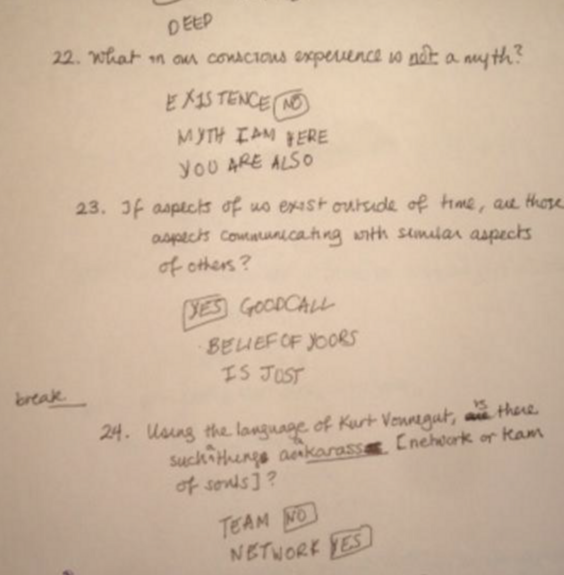 DEEP
22. What in our conscious experience is not a myth?
EXISTENCE NO
MYTH I AM HERE
YOU ARE ALSO
23. If aspects of us exist outside of time, are those
aspects communicating with similar aspects
of others?
YES GOODCALL
BELIEF OF YOORS
IS JUST
break
24. Using the language of Kurt Vonnegut, is there
such a thing as a karass [network or team
of souls]?
TEAM NO
NETWORK YES